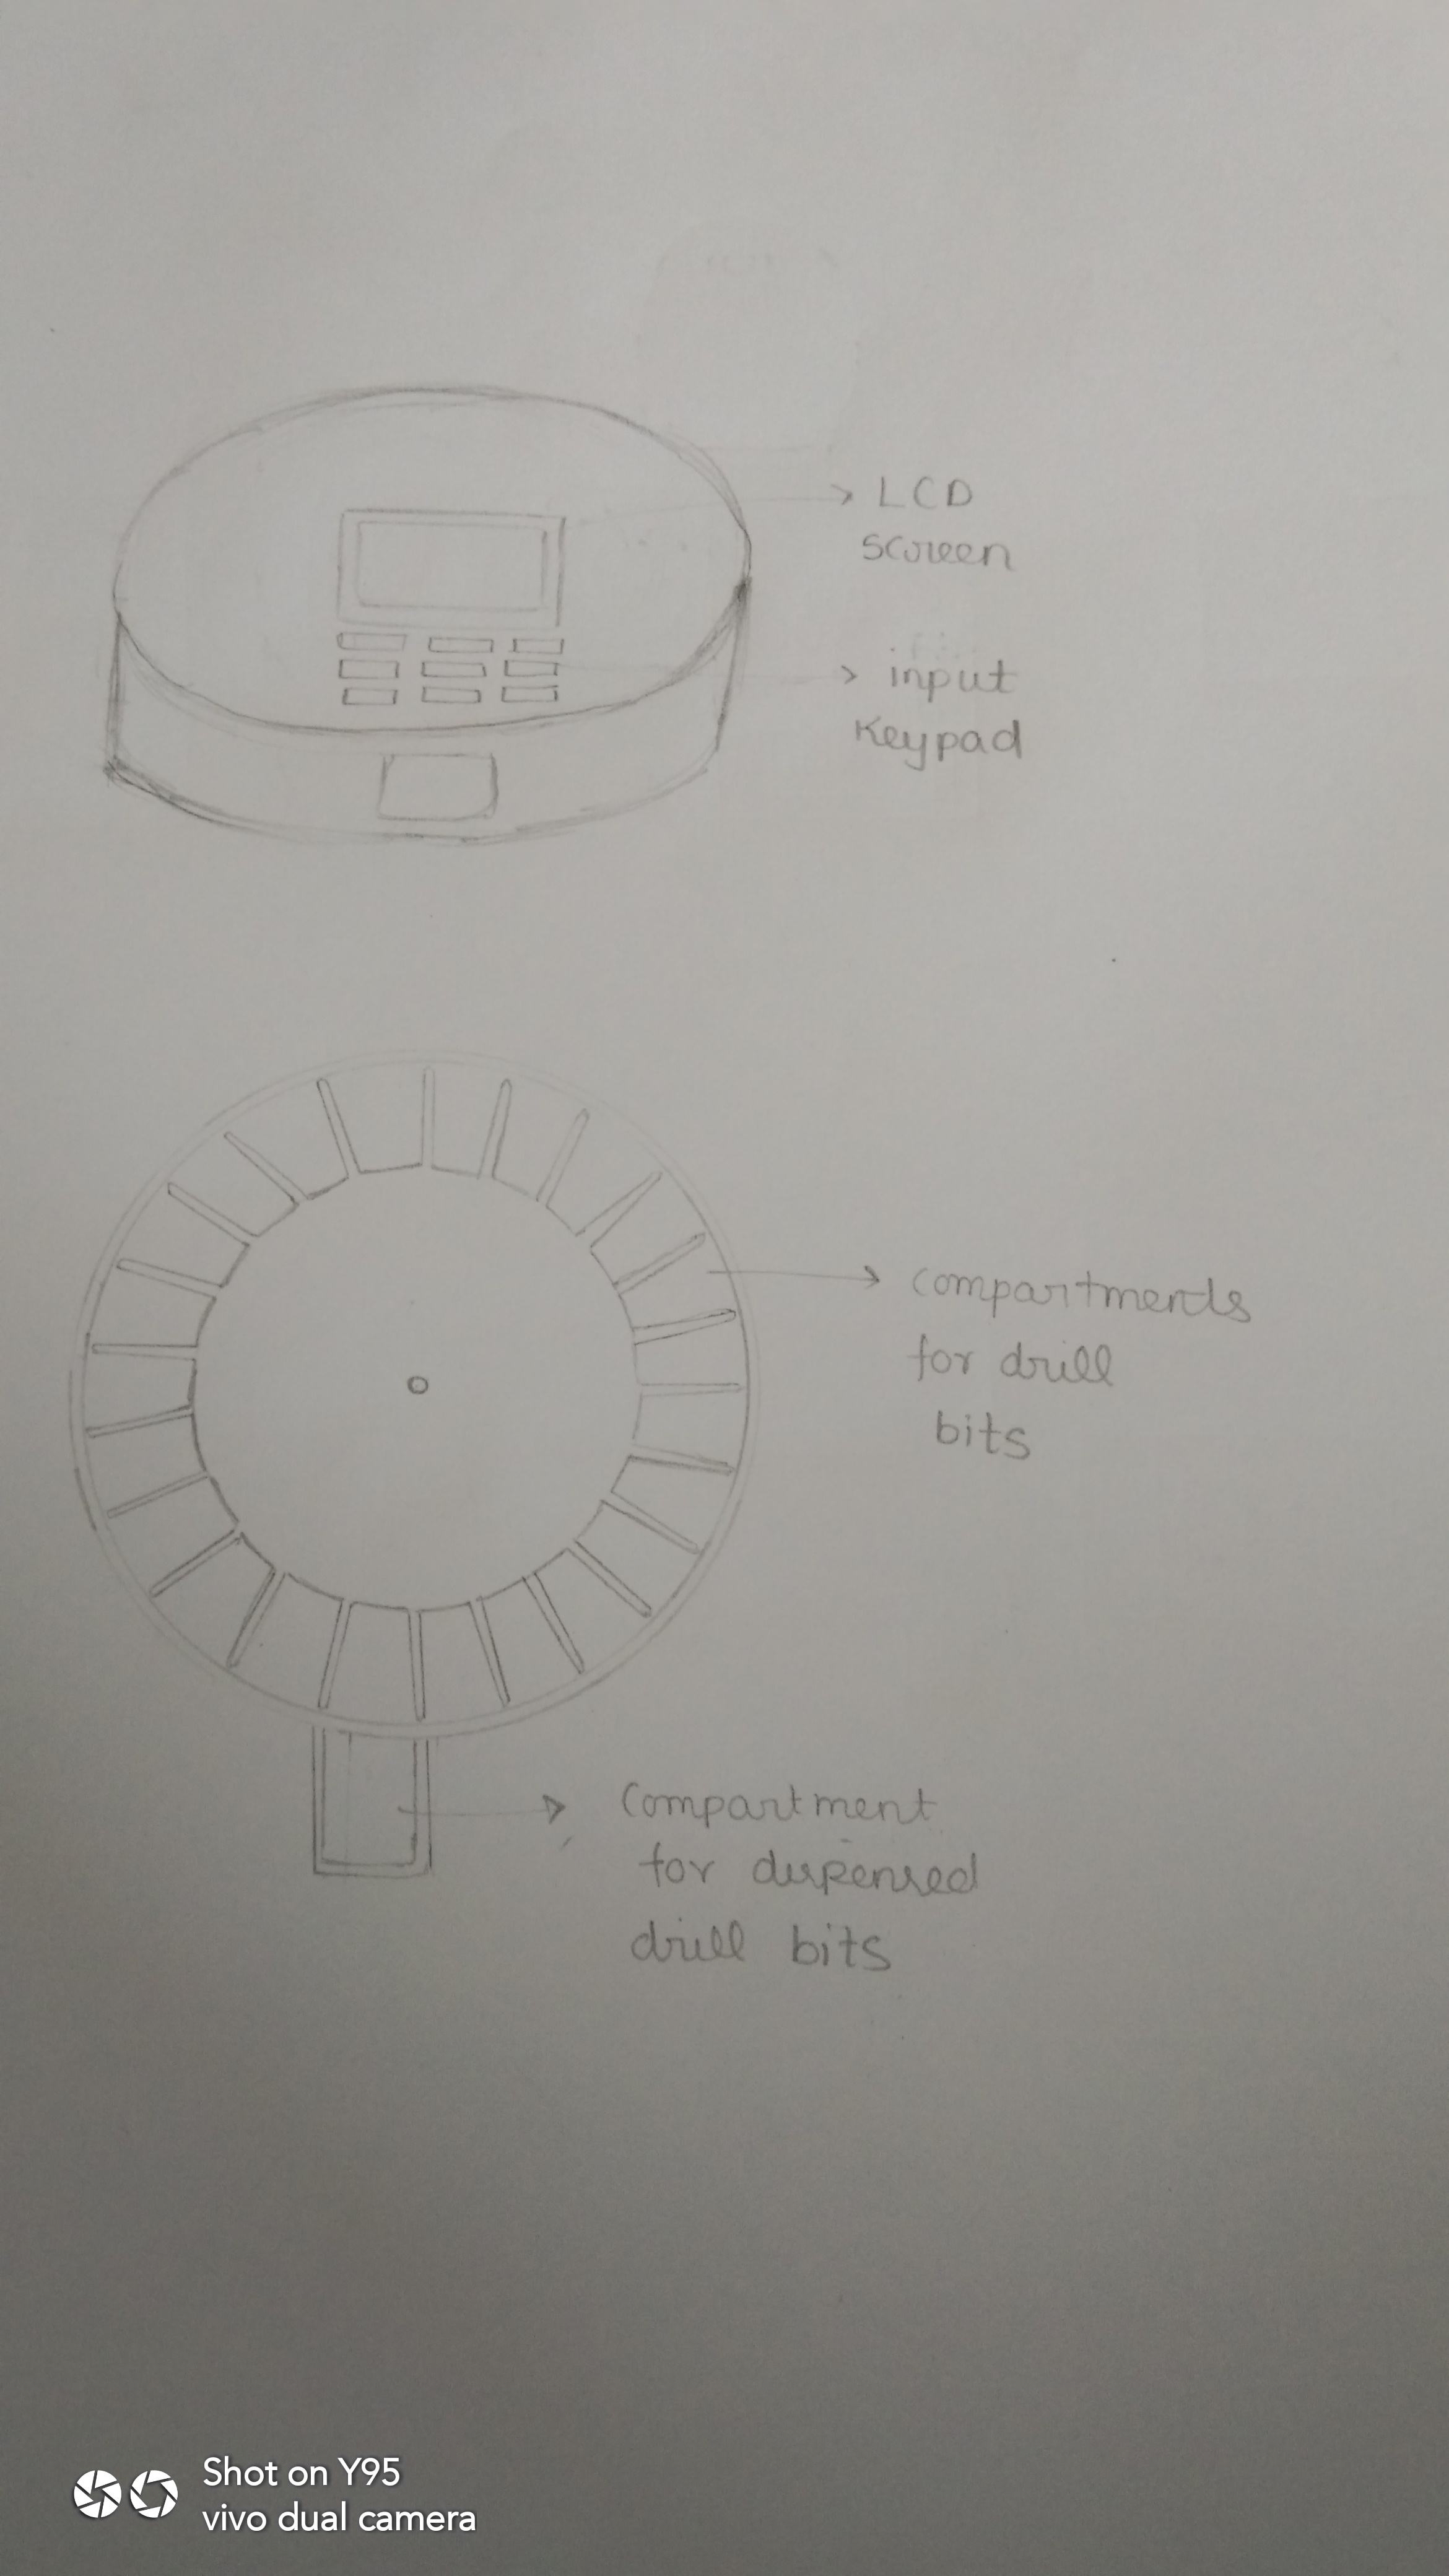 LCD
screen
input
keypad
compartments
for drill
bits
compartment
for dispensed
drill bits
Shot on Y95
vivo dual camera